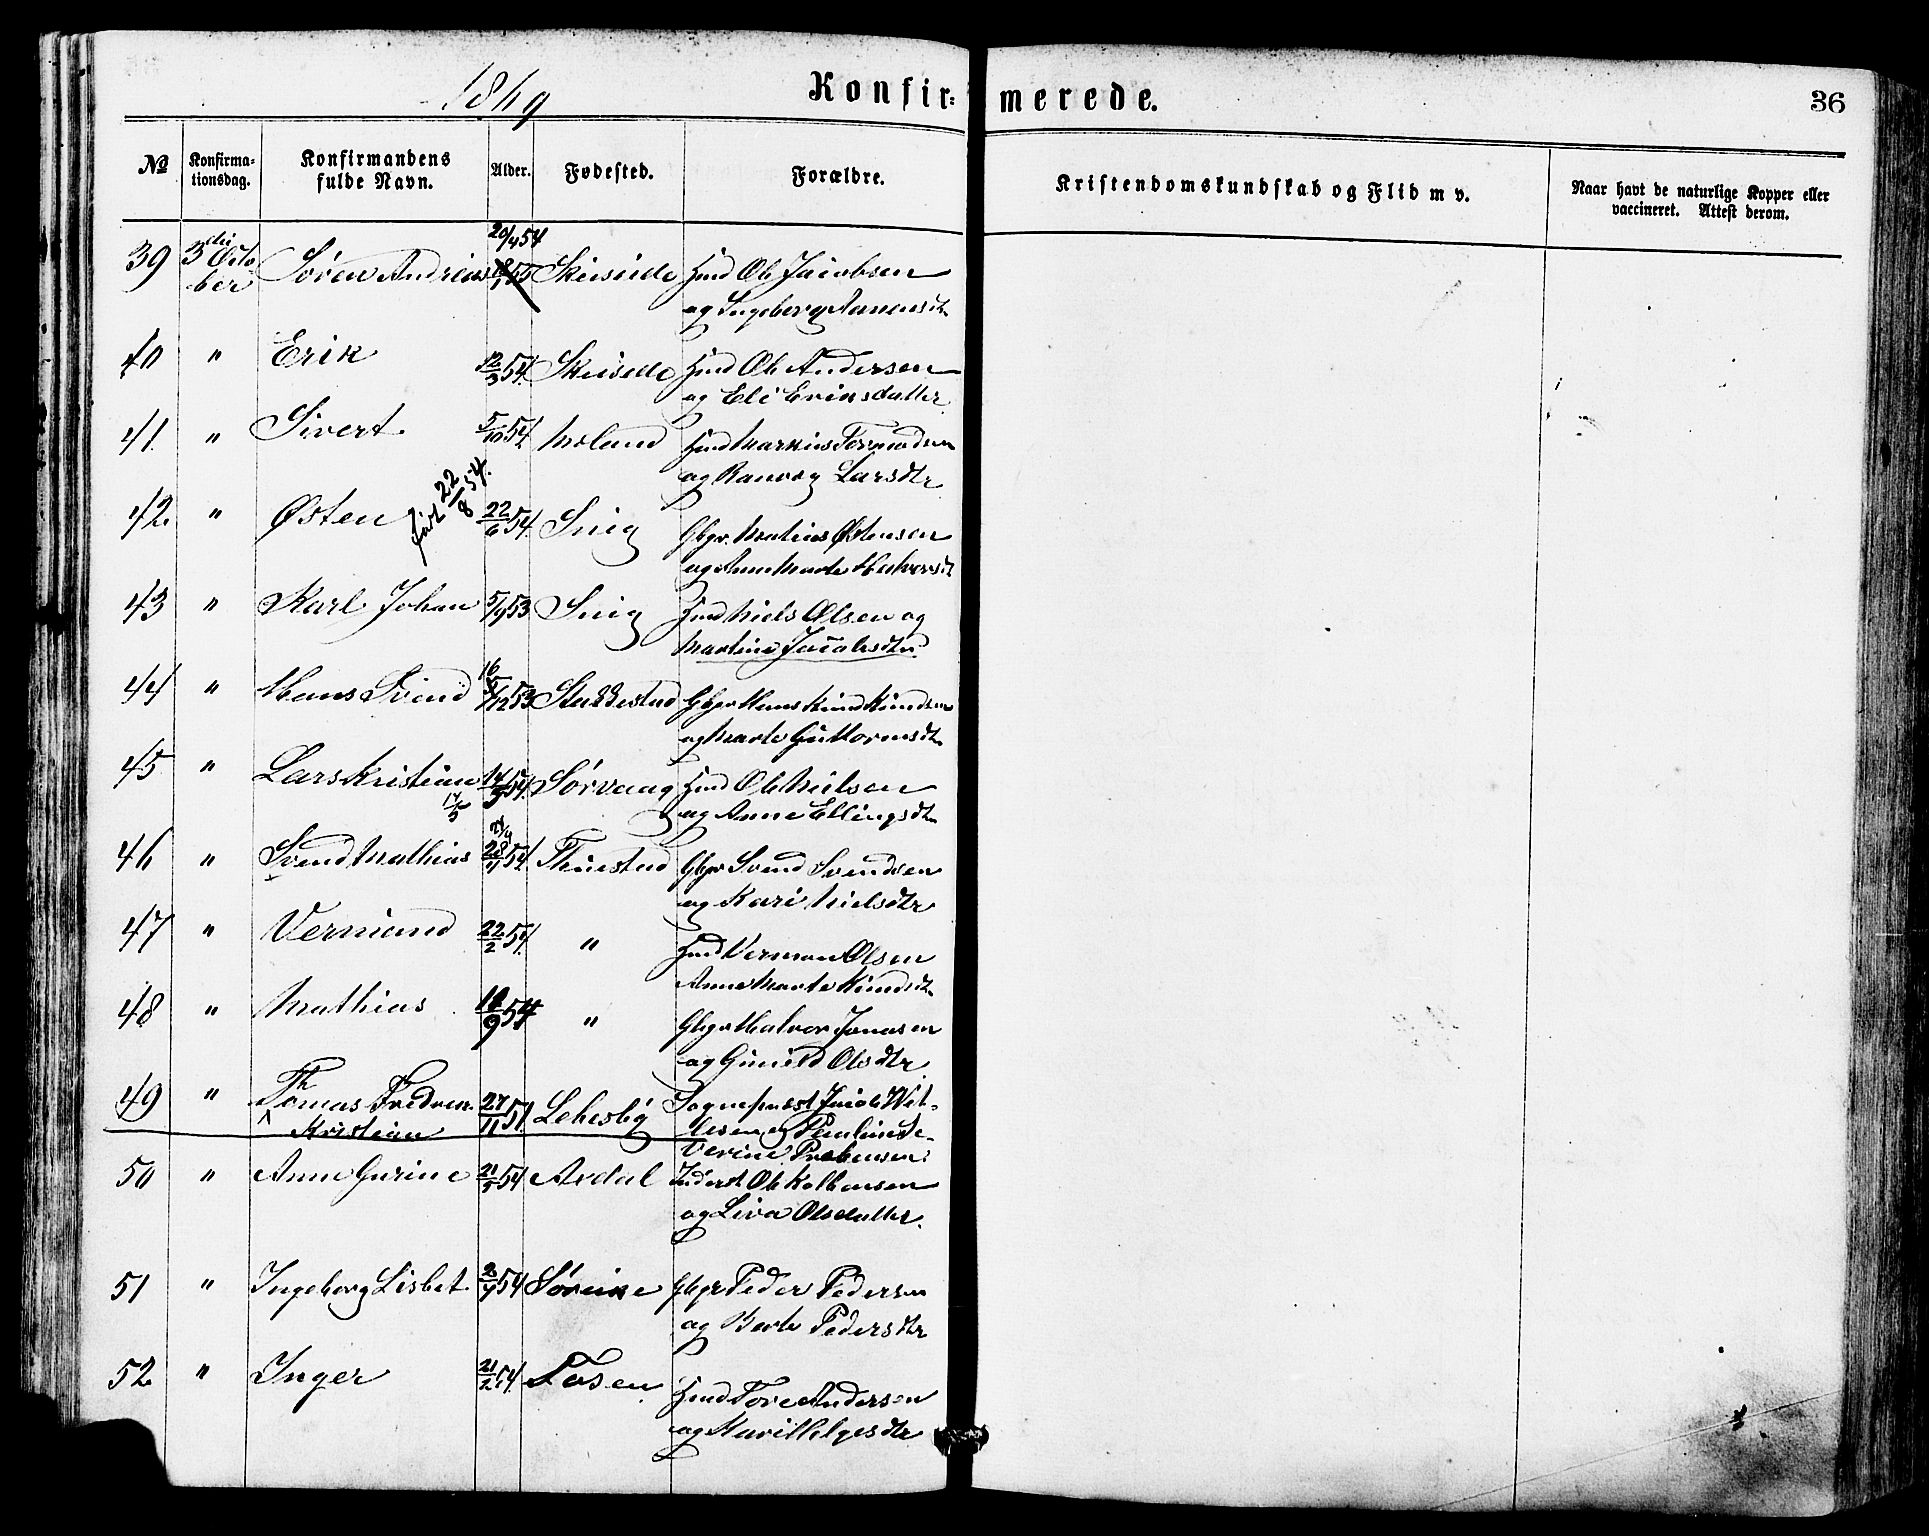 1869
Konfir= merede.
36
No Konfirma-tionsdag. Konfirmandens fulde Navn. Alder. Fødested. Forældre. Kristendomskundskab og Flid m v. Naar havt de naturlige Kopper eller vaccineret. Attest derom.
20/4 54
39 3die Octo Søren Andreas Hmd Ole Jacobsen
ber og Ingeborg
40 " Erik 12/3 54. Hmd Ole Andersen
og Eli Eriksdatter
41. " Sivert 5/10 54 Moland Hmd Markus Tormodsen
og Ranveg Larsdtr
født 22/8 54.
42. " Østen 22/6 54. Snig Gbgr. Matias Østensen
og Anne Marte Halvorsdt
43 " Karl Johan 5/9 53 Snig Hmd Niels Olsen og
Martine Jacobsdtr
16
44 " Hans Svend /12 53 Gbgr Hans Knud Knudsen
og Marte Guttormsdtr
45 " Lars Kristian 14/5 54. Sørvaag Hmd Ole Nielsen
17/5 og Anne Ellingsdtr
46 " Svend Mathias 28/4 54 Thuestad Gbgr Svend Svendsen
og Kari Nielsdtr
47 " Vermund 22/2 54. " Hmd Vermon Olsen
Anne Marte Knudsdtr
48 " Mathias 18/9 54 " Gbgr Halvor Jonasen
og Gunild Olsdtr.
49 " Thomas Fredrik 27/11 51. Lebesby Sogneprest Jacob Wet-
Kristian lesen og Pauline Se-
verine Prebensen
50 " Anne Gurine 21/5 54 Ardal Inderst Ole Kolbensen
og Siva Olsdatter.
51 " Ingeborg Lisbet 2/4 54 Gbgr Peder Pedersen
og Berte Pedersdtr
52 " Inger 21/2 54. Fosen Hmd Tore Andersen
og Kari Helgesdtr